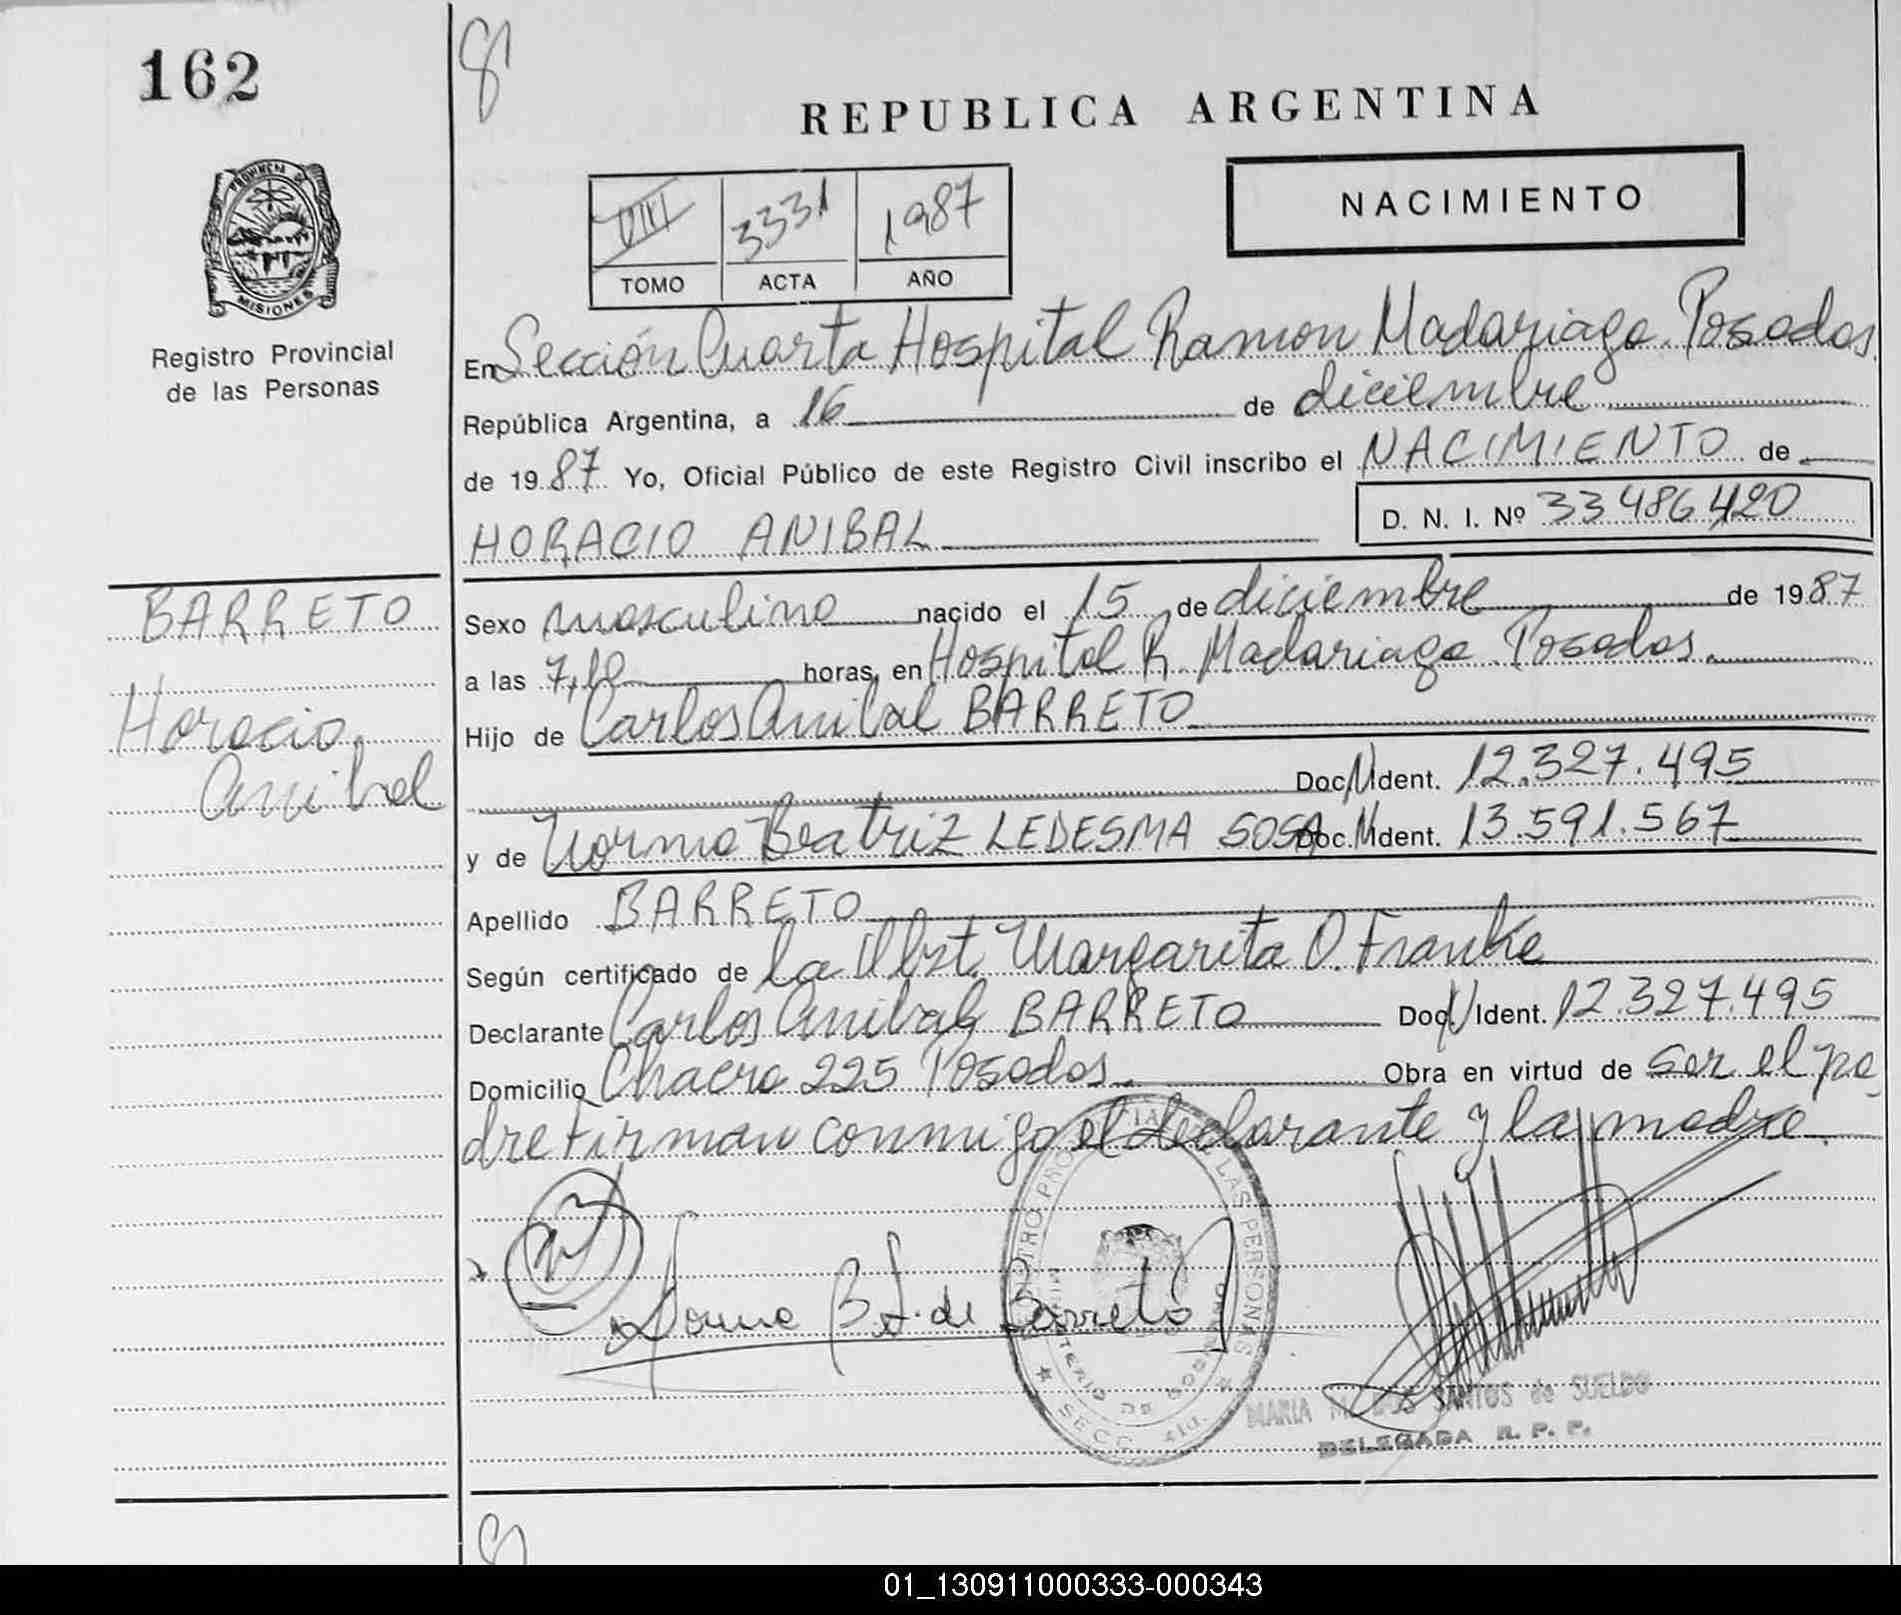 162
8
REPUBLICA ARGENTINA
PROVINCIA DE
MISIONES
Registro Provincial
de las Personas
VIII 3331 1987
TOMO ACTA AÑO
NACIMIENTO
En Sección Cuarta Hospital Ramon Madariaga Posadas
República Argentina, a 16 de diciembre
de 1987 Yo, Oficial Público de este Registro Civil inscribo el NACIMIENTO de
HORACIO ANIBAL D. N. I. Nº 33486420
BARRETO
Horacio
Anibal
Sexo masculino nacido el 15 de diciembre de 1987
a las 7,10 horas, en Hospital R. Madariaga Posadas.
Hijo de Carlos Anibal BARRETO
Doc. N Ident. 12.327.495
y de Norma Beatriz LEDESMA SOSA Doc. N Ident. 13.591.567
Apellido BARRETO
Según certificado de la Obst. Margarita O. Franke
Declarante Carlos Anibal BARRETO Doc. N Ident. 12.327.495
Domicilio Chacra 225 Posadas. Obra en virtud de ser el pa
dre firman conmigo el declarante y la madre.
Norma B L. de Barreto
LAS PERSONAS
SECC. 4ta.
MARIA M. DOS SANTOS de SUELDO
DELEGADA R. P. P.
01_130911000333-000343